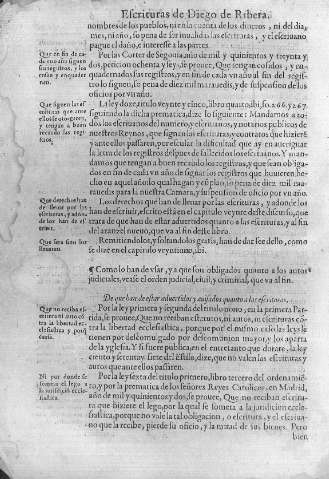 Escrituras de Diego de Ribera.
nombres de los pueblos, ni aya cuenta de los dineros, ni del dia,
mes, ni año, so pena de ser inualidas las escrituras, y el escriuano
pague el daño, e interesse a las partes.
Que en fin de ca-
da año signen
sus registros, y los
cosan y enquader
nan.
Por las Cortes de Segouia, año de mil y quinientos y treynta y
dos, peticion ochenta y ley, se prouee, Que tengan cosidos, y en-
quadernados sus registros, y en fin de cada vn año al fin del regis-
tro lo signen, so pena de diez mil marauedis, y de suspension de los
oficios por vn año.
Que signen las es-
crituras que ante
ellos se otorgaren,
y tengan a buen
recado sus regis-
tros.
La ley doze, titulo veynte y cinco, libro quarto, dise, fo. 266. y 267.
siguiendo la dicha prematica, dize lo siguiente: Mandamos a to-
dos los escriuanos del numero, y escriuanos, y notarios publicos de
nuestros Reynos, que signen las escrituras, y contratos que hizieren
y ante ellos passaren, por escusar la dificultad que ay en aueriguar
la letra de los registros despues de fallecidos los escriuanos. Y man-
damos que tengan a bien recaudo los registros, y que sean obliga-
dos en fin de cada vn año de signar los registros que huuieren he-
cho en aquel año
la qual hagan y cumplan, so pena de diez mil ma-
rauedis para la nuestra Camara, y suspension de oficio por vn año.
Que derechos han
de lleuar por las
escrituras, y adon-
de los han de es-
creuir.
Los derechos que han de lleuar por las escrituras, y adonde los
han de escriuir, escrito està en el capitulo veynte deste discurso, que
trata de que han de estar aduertidos quanto a las escrituras, y al fin
del aranzel nueuo, que va al fin deste libro.
Remitiendolos, y soltandolos gratis, han de dar fee dello, como
se dize en el capitulo veyntiuno,
¶ Como lo han de vsar, y a que son obligados quanto a los autos
judiciales, vease el orden judicial, ciuil, y criminal, que va al fin.
De que han de estar aduertidos, y auisados quanto a las escrituras.
Por la ley primera y segunda del titulo nono, en la primera Par-
tida, se prouee, Que no reciban escrituras, ni autos, ni escrituras có-
tra la libertad ecclesiastica, porque por el mismo caso las leyes le
tienen por descomulgado por descomunion mayor, y los aparta
de la yglesia. Y si fuere publica,
en el entretanto que durare, la ley
ciento y setenta y siete del Estilo, dize, que no valen las escrituras y
autos que ante ellos passaren.
Ni por donde se
someta el lego a
la jurisdicion eccle-
siastica.
Por la ley sexta del titulo primero, libro tercero del ordenamié-
to, y por la prematica de los señores Reyes Catolicos, en Madrid,
año de mil y quinientos y dos, se prouee, Que no reciban escritu-
ra que hiziere el lego, por la qual se someta a la juridicion eccle-
siastica, porque no vale la tal obligacion, o escritura, y el escriua-
no que la recibe, pierde su oficio, y la mitad de sus bienes. Pero
bien,